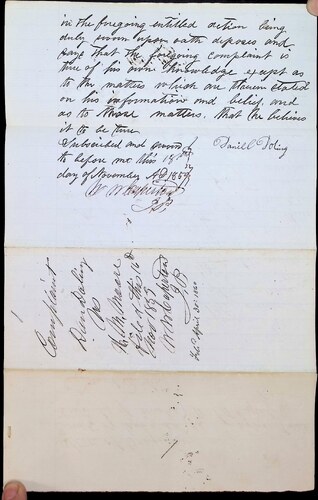 in the foregoing entitled action being
duly sworn upon oath deposes and
says that the foregoing complaint is
true of his own knowledge except as
to the matters which are therein stated
on his information and belief, and
as to those matters. that he believes
it to be true
Subscribed and sworn
to before me this
day of November AD 185
J.P.
Daniel Doling
Complaint
Doling
vs
File this 16th
Nov 185
J.P.